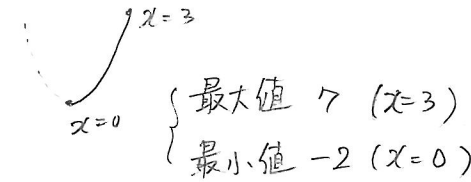 x=3
x=0
最大値 7 (x=3)
最小値 -2 (x=0)